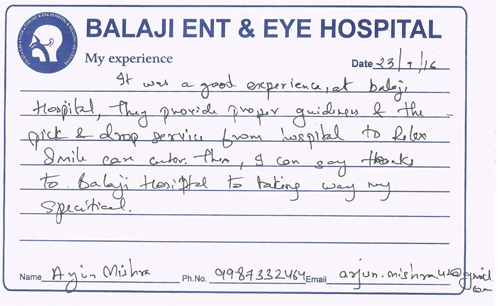 BALAJI ENT & EYE HOSPITAL
My experience
Date 23/7/16
It was a good experience, at balaji
Hospital, They provide proper guidness & the
pick & drop service from hospital to Relex
Smile care center. Then, I can say thanks
to Balaji Hosiptal to taking way my
Specitical.
Name Mishra Ph.No. 9987332464 Email arjun.mishra @gmail
com